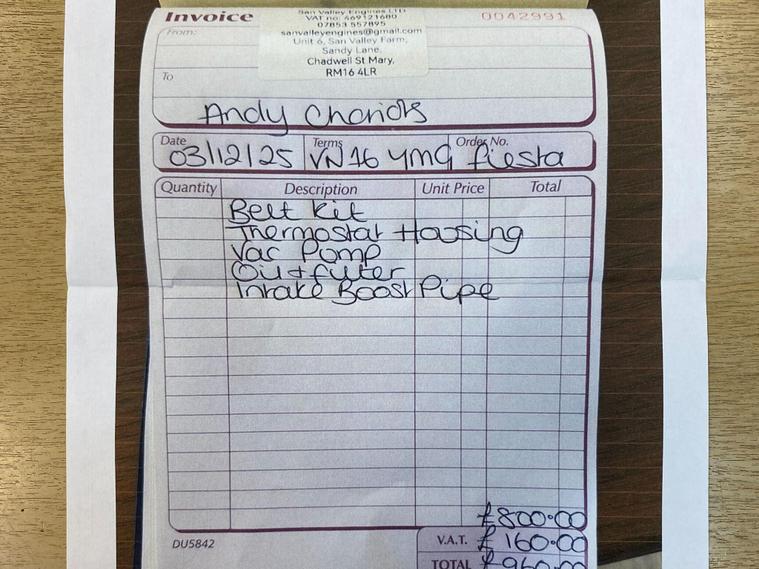 Invoice
San Valley Engines LTD
VAT no: 469121680
07853 557895
sanvalleyengines@gmail.com
Unit 6, San Valley Farm,
Sandy Lane,
Chadwell St Mary,
RM16 4LR
0042991
From:
To
Andy
Date 03/12/25
Terms VN16 YMG
Order No. fiesta
Quantity Description Unit Price Total
Belt Kit
Thermostat Housing
Vac Pump
Oil + filter
Intake Boost Pipe
£800.00
DU5842
V.A.T. £160.00
TOTAL £960.00